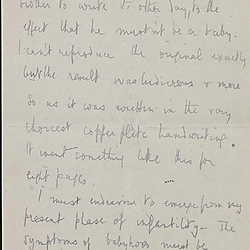 to write to other day, to the
effect that he mustn't be a baby.
I can't reproduce the original exactly
but the result was ludicrous & more
so as it was written in the very
choicest copper plate handwriting.
It went something like this for
eight pages.
"I must endeavour to emerge from my
present phase of infantility – The
symptoms of babyhood must be